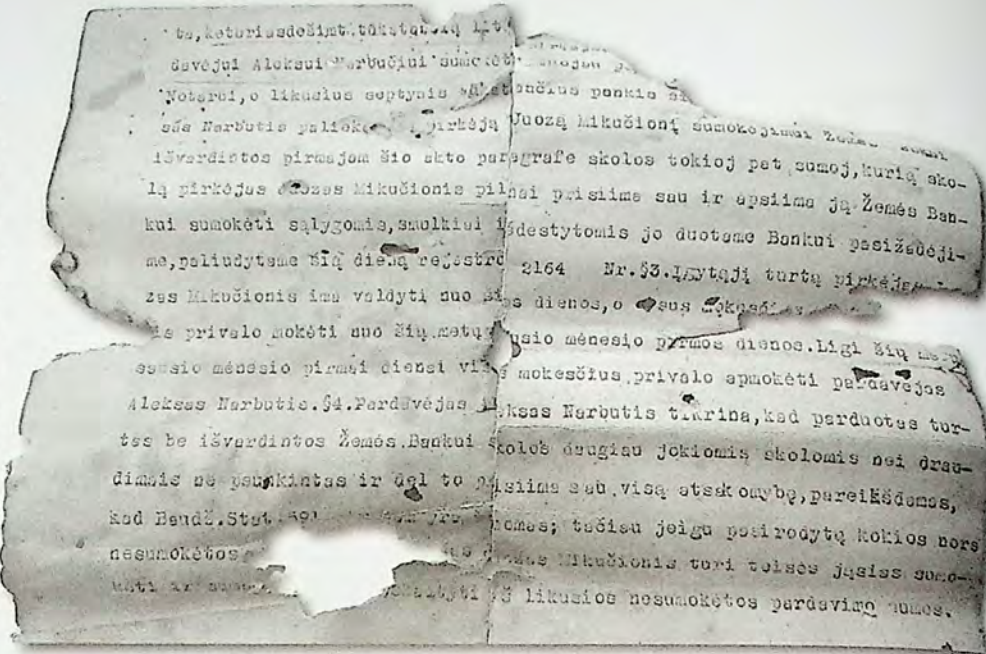 ta, keturiasdešimt tūkstančių lit
davėjui Aleksui Narbučiui sumokėt
Notarui, o likusius septynis tūkstančius penkis ši
sas Narbutis palieka pirkėją Juozą Mikučionį sumokėjimui Žemės
išvardintos pirmajam šio akto paragrafe skolos tokioj pat sumoj, kurią sko-
lą pirkėjas Juozas Mikučionis pilnai prisiima sau ir apsiima ją Žemės Ban-
kui sumokėti sąlygomis, smulkiai išdėstytomis jo duotame Bankui pasižadėji-
me, paliudytame šią dieną rejestro 2164 Nr. §3. Įgytąjį turtą pirkėjas
zas Mikučionis ima valdyti nuo šios dienos, o visus mokesčius
is privalo mokėti nuo šių metų sausio mėnesio pirmos dienos. Ligi šių metų
sausio mėnesio pirmai dienai visus mokesčius privalo apmokėti pardavėjas
Aleksas Narbutis. §4. Pardavėjas Aleksas Narbutis tikrina, kad parduotas tur-
tas be išvardintos Žemės Bankui skolos daugiau jokiomis skolomis nei drau-
dimais nė sunkintas ir dėl to prisiima sau visą atsakomybę, pareikšdamas,
kad Baudž. Stat. 591 žinomas; tačiau jeigu pasirodytų kokios nors
nesumokėtos Juozas Mikučionis turi teisės jąsias sumo-
kėti ir iš likusios nesumokėtos pardavimo sumos.